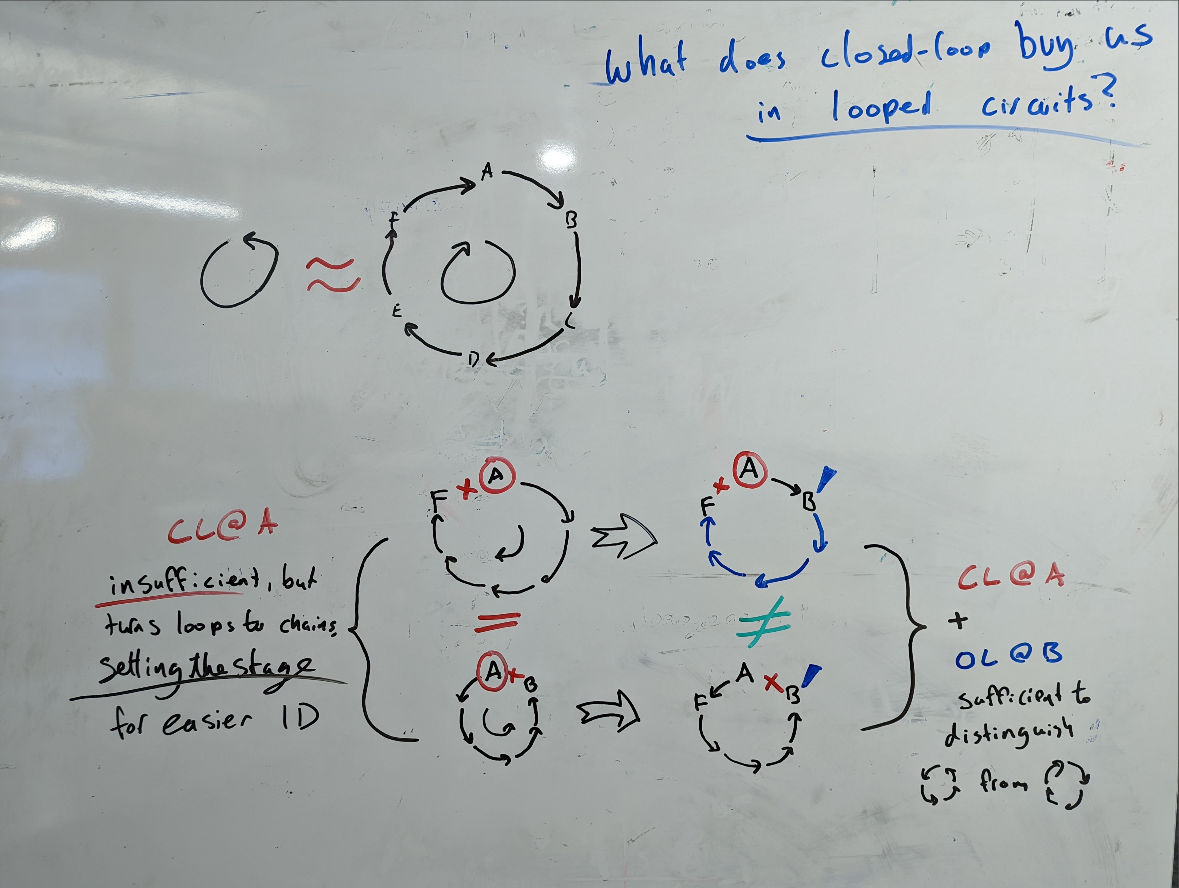 What does closed-loop buy us
in looped circuits?
A
F
B
≈
E
C
D
A
F
×
=
CL@A
insufficient, but
turns loops to chains,
setting the stage
for easier ID
A
×
B
A
F
×
B
≠
A
F
×
B
CL@A
+
OL@B
sufficient to
distinguish
from